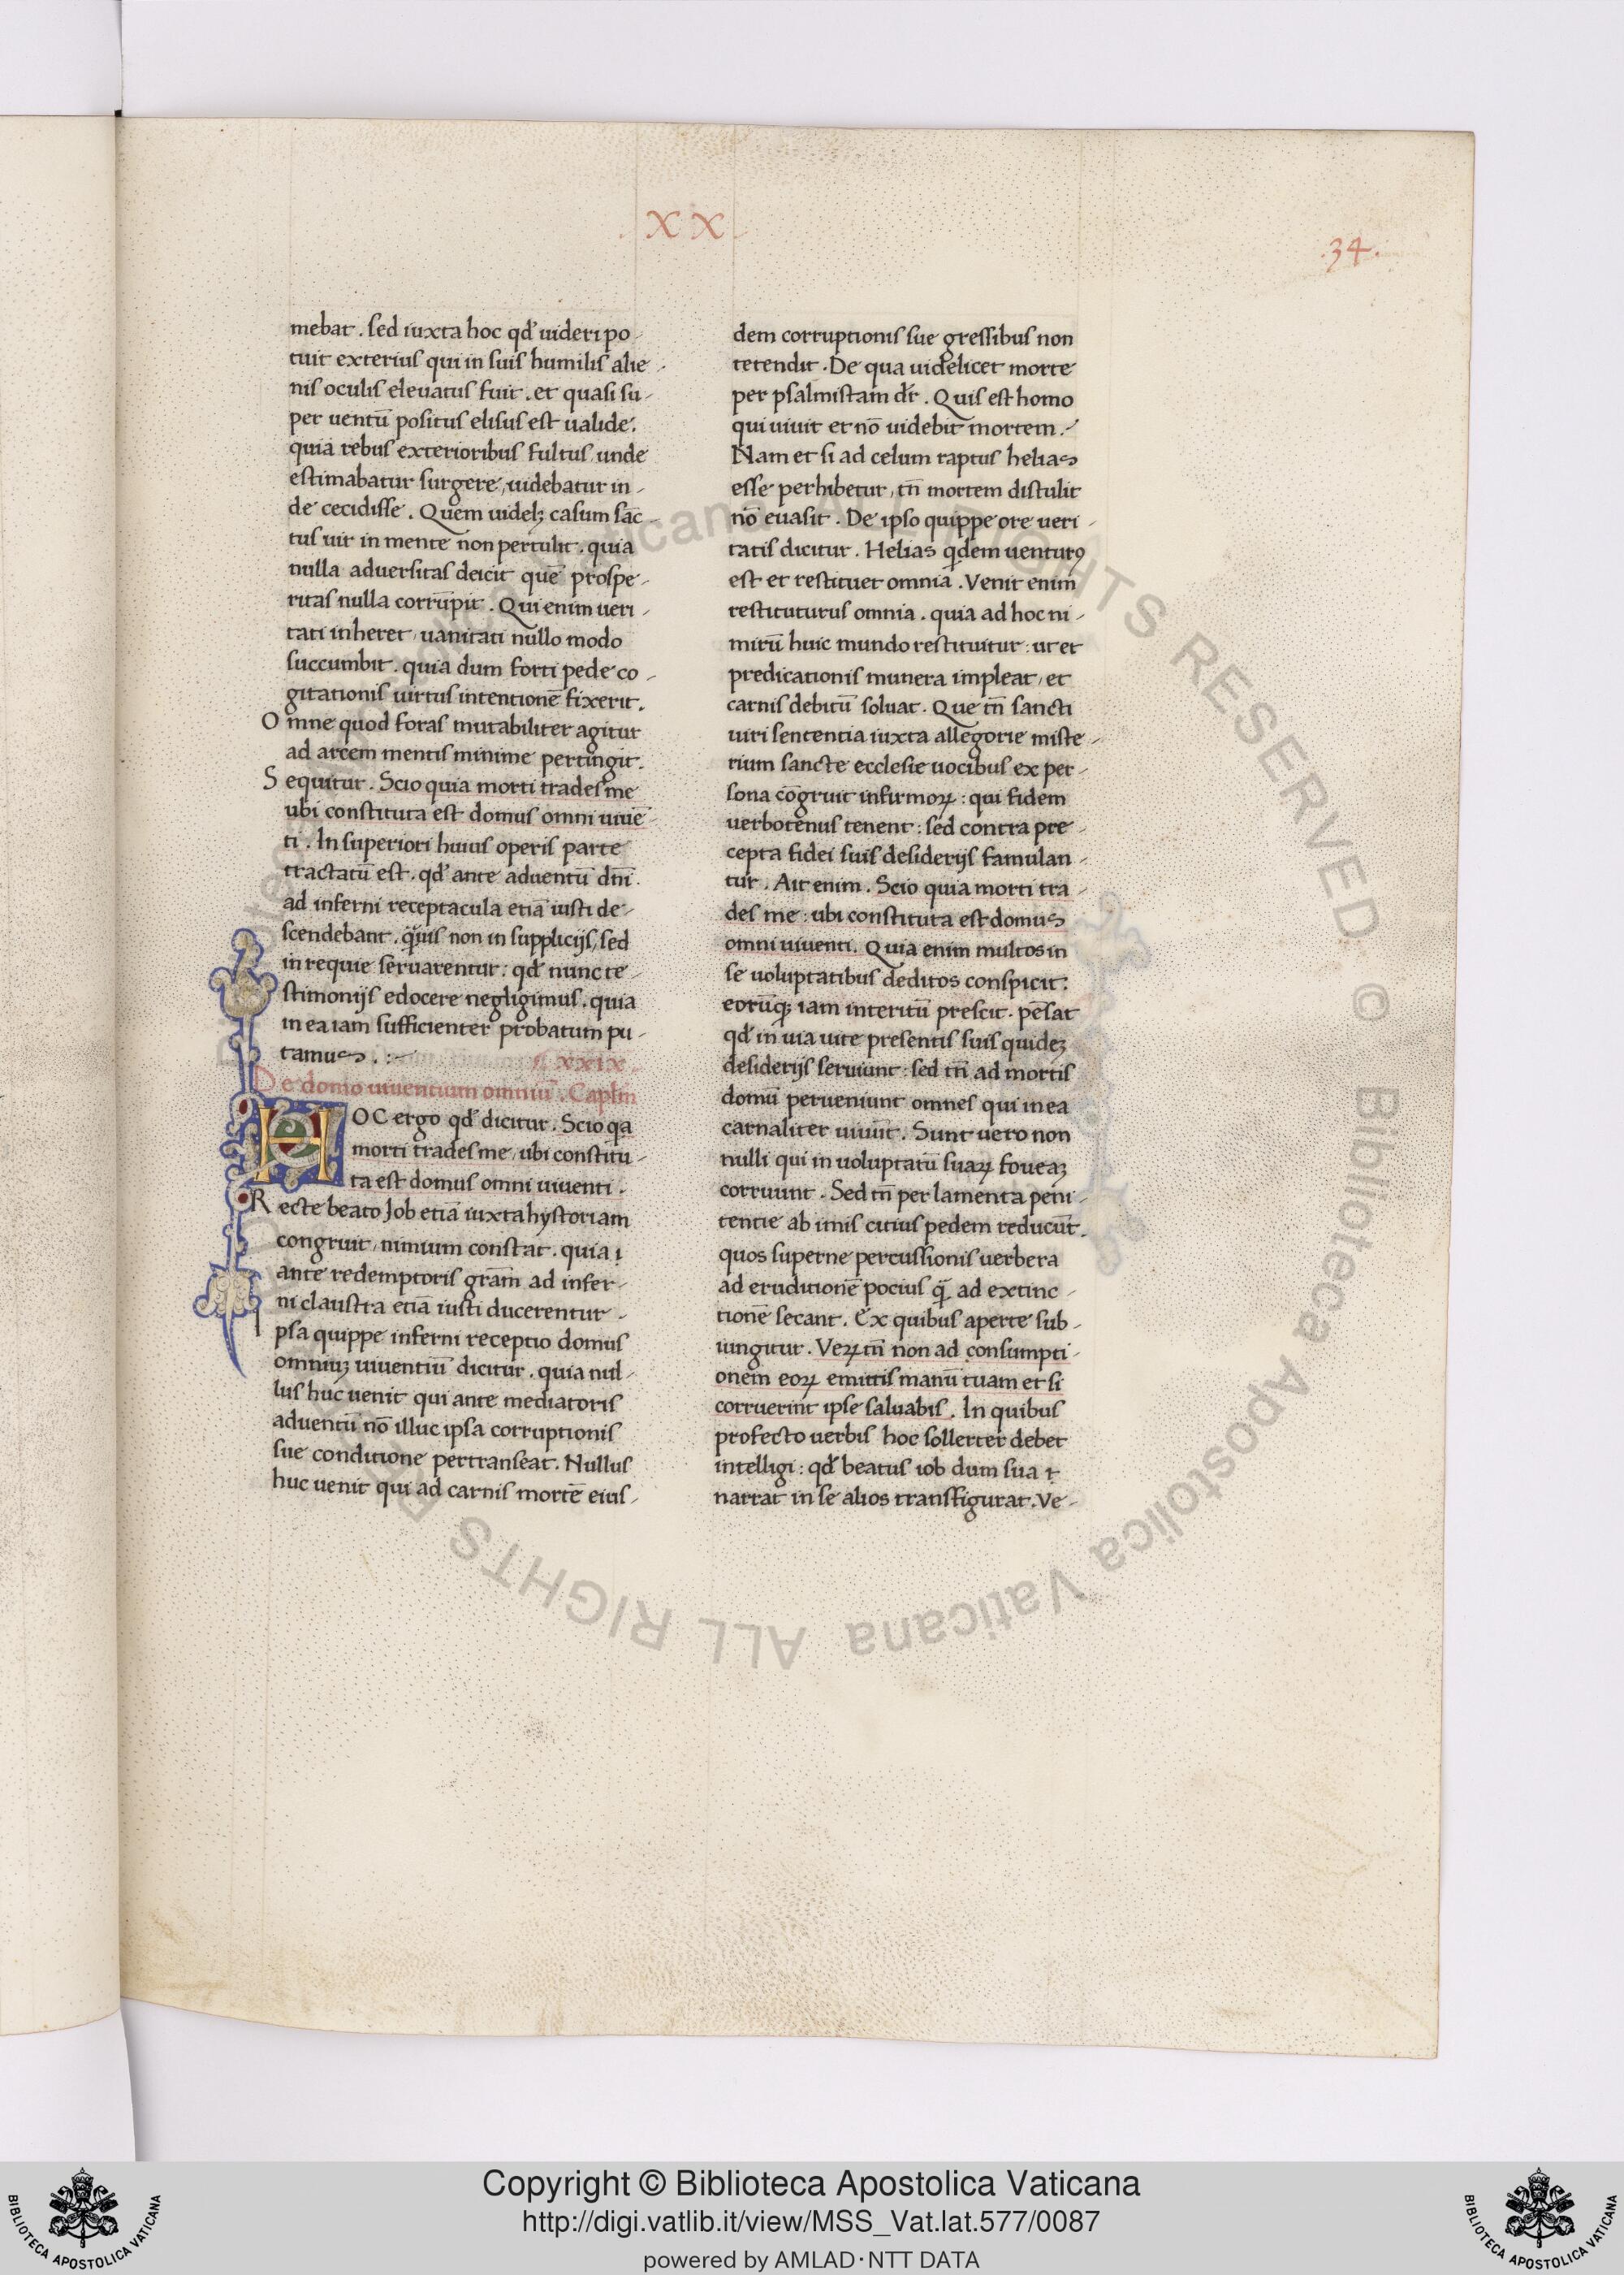 .XX.
.34.
mebat. sed iuxta hoc qď uideri po-
tuit exterius qui in suis humilis alie-
nis oculis eleuatus fuit. et quasi su-
per uentū positus elisus est ualide.
quia rebus exterioribus fultus, unde
estimabatur surgere, uidebatur in-
de cecidisse. Quem uidelꝫ casum sāc-
tus uir in mente non pertulit. quia
nulla aduersitas deicit quē prospe-
ritas nulla corrūpit. Qui enim ueri-
tati inheret, uanitati nullo modo
succumbit. quia dum forti pede co-
gitationis uirtus intentionē fixerit.
Omne quod foras mutabiliter agitur
ad arcem mentis minime pertingit.
Sequitur. Scio quia morti trades me
ubi constituta est domus omni uiuē-
ti. In superiori huius operis parte
tractatū est. qď ante aduentū dn̄i.
ad inferni receptacula etiā iusti de-
scendebant. q̄uis non in supplicijs, sed
in requie seruarentur: qď nunc te-
stimonijs edocere negligimus. quia
in ea iam sufficienter probatum pu-
tamus. :-
XXIX.
De domo uiuentium omniū. Caplm̄
HOC ergo qď dicitur. Scio qa
morti trades me, ubi constitu-
ta est domus omni uiuenti.
Recte beato Job etiā iuxta hystoriam
congruit, nimium constat. quia ı
ante redemptoris grām ad infer-
ni claustra etiā iusti ducerentur.
Ipsa quippe inferni receptio domus
omniuꝫ uiuentiū dicitur. quia nul-
lus huc uenit qui ante mediatoris
aduentū nō illuc ipsa corruptionis
sue conditione pertranseat. Nullus
huc uenit qui ad carnis mortē eius-
dem corruptionis sue gressibus non
tetendit. De qua uidelicet morte
per psalmistam dr̄. Quis est homo
qui uiuit et nō uidebit mortem.
Nam et si ad celum raptus helias
esse perhibetur, tn̄ mortem distulit
nō euasit. De ipso quippe ore ueri-
tatis dicitur. Helias qdem uenturꝯ
est et restituet omnia. Venit enim
restituturus omnia. quia ad hoc ni-
mirū huic mundo restituitur: ut et
predicationis munera impleat, et
carnis debitū soluat. Que tn̄ sancti
uiri sententia iuxta allegorie miste-
rium sancte ecclesie uocibus ex per-
sona cōgruit infirmoꝝ: qui fidem
uerbotenus tenent: sed contra pre-
cepta fidei suis desiderijs famulan-
tur. Ait enim. Scio quia morti tra-
des me: ubi constituta est domus
omni uiuenti. Quia enim multos in
se uoluptatibus deditos conspicit:
eorūqꝫ iam interitū prescit. pēsat
qď in uia uite presentis suis quideꝫ
desiderijs seruiunt: sed tn̄ ad mortis
domū perueniunt omnes qui in ea
carnaliter uiuūt. Sunt uero non
nulli qui in uoluptatū suaꝝ foueaꝫ
corruunt. Sed tn̄ per lamenta peni-
tentie ab imis citius pedem reducūt.
quos superne percussionis uerbera
ad eruditionē pocius q̄ ad extinc-
tionē secant. Ex quibus aperte sub-
iungitur. Veꝝtn̄ non ad consumpti-
onem eoꝝ emittis manū tuam et si
corruerint ipse saluabis. In quibus
profecto uerbis hoc sollerter debet
intelligi: qď beatus iob dum sua ı
narrat in se alios transfigurat. Ve-
Biblioteca Apostolica Vaticana ALL RIGHTS RESERVED ©
Copyright © Biblioteca Apostolica Vaticana
http://digi.vatlib.it/view/MSS_Vat.lat.577/0087
powered by AMLAD·NTT DATA
BIBLIOTECA APOSTOLICA VATICANA
BIBLIOTECA APOSTOLICA VATICANA